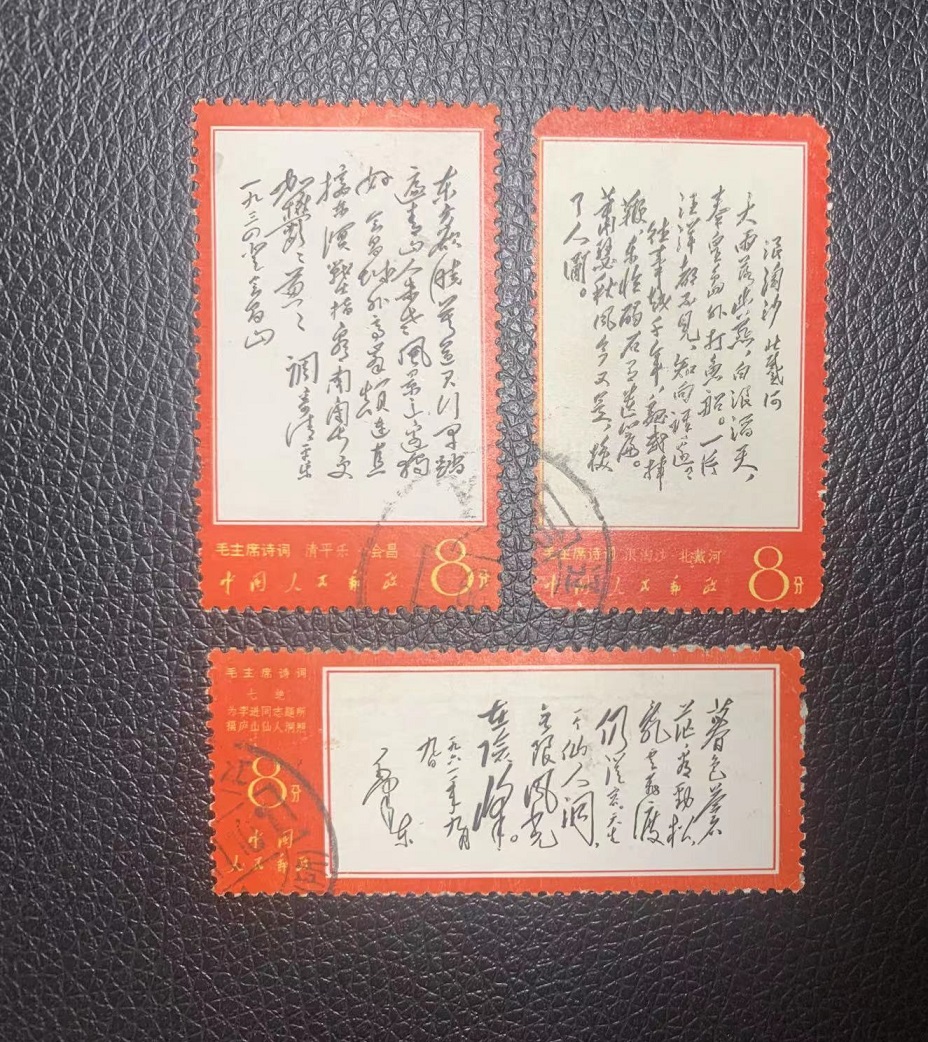 东方欲晓莫道君行早踏
遍青山人未老风景这边独
好 会昌城外高峰颠连直
接东溟战士指看南粤更
加郁々葱々
调寄清平乐
一九三四登会昌山
毛主席诗词 清平乐 会昌
中国人民邮政
8分
浪淘沙 北戴河
大雨落幽燕,白浪滔天,
秦皇岛外打鱼船。一片
汪洋都不见,知向谁边?
往事越千年,魏武挥
鞭,东临碣石有遗篇。
萧瑟秋风今又是,换
了人间。
毛主席诗词 浪淘沙·北戴河
中国人民邮政
8分
毛主席诗词
七绝
为李进同志题所
摄庐山仙人洞照
8分
中国
人民邮政
暮色苍
茫看劲松
乱云飞渡
仍从容。天生
一个仙人洞,
无限风光
在险峰。
一九六一年九月
九日
毛泽东